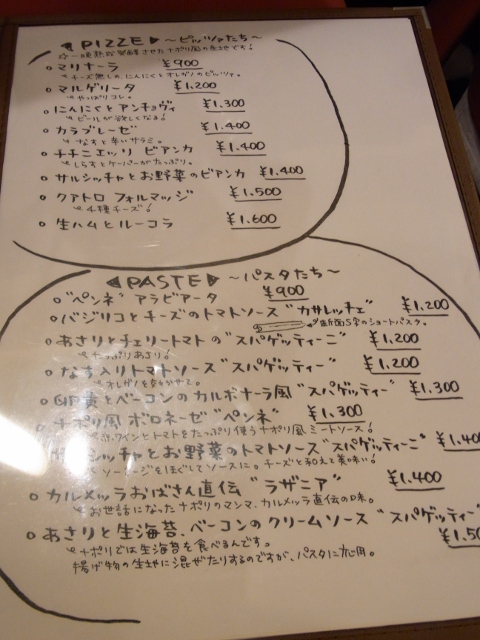 PIZZE ~ピッツァたち~
☆一晩熟成発酵させたナポリ風の生地です!
○マリナーラ ¥900
チーズ無しの、にんにくとオレガノのピッツァ。
○マルゲリータ ¥1,200
やっぱりコレ。
○にんにくとアンチョヴィ ¥1,300
ビールが欲しくなる!
○カラブレーゼ ¥1,400
なすと辛いサラミ。
○チチニエッリ ビアンカ ¥1,400
しらすとケーパーがたっぷり。
○サルシッチャとお野菜のビアンカ ¥1,400
○クアトロ フォルマッジ ¥1,500
4種チーズ!
○生ハムとルーコラ ¥1,600
PASTE ~パスタたち~
○"ペンネ" アラビアータ ¥900
○バジリコとチーズのトマトソース "カサレッチェ" ¥1,200
断面S字のショートパスタ。
○あさりとチェリートマトの"スパゲッティーニ" ¥1,200
たっぷりあさり!
○なす入りトマトソース"スパゲッティー" ¥1,200
オレガノを効かせて。
○卵黄とベーコンのカルボナーラ風"スパゲッティー" ¥1,300
○ナポリ風 ボロネーゼ"ペンネ" ¥1,300
赤ワインとトマトをたっぷり使うナポリ風ミートソース!
サルシッチャとお野菜のトマトソース"スパゲッティーニ" ¥1,400
ソーセージをほぐしてソースに。チーズと和えて美味い!
○カルメッラおばさん直伝 "ラザニア" ¥1,400
お世話になったナポリのマンマ、カルメッラ直伝の味。
○あさりと生海苔、ベーコンのクリームソース "スパゲッティー" ¥1,50
ナポリでは生海苔を食べるんです。
揚げ物の生地に混ぜたりするのですが、パスタに応用。